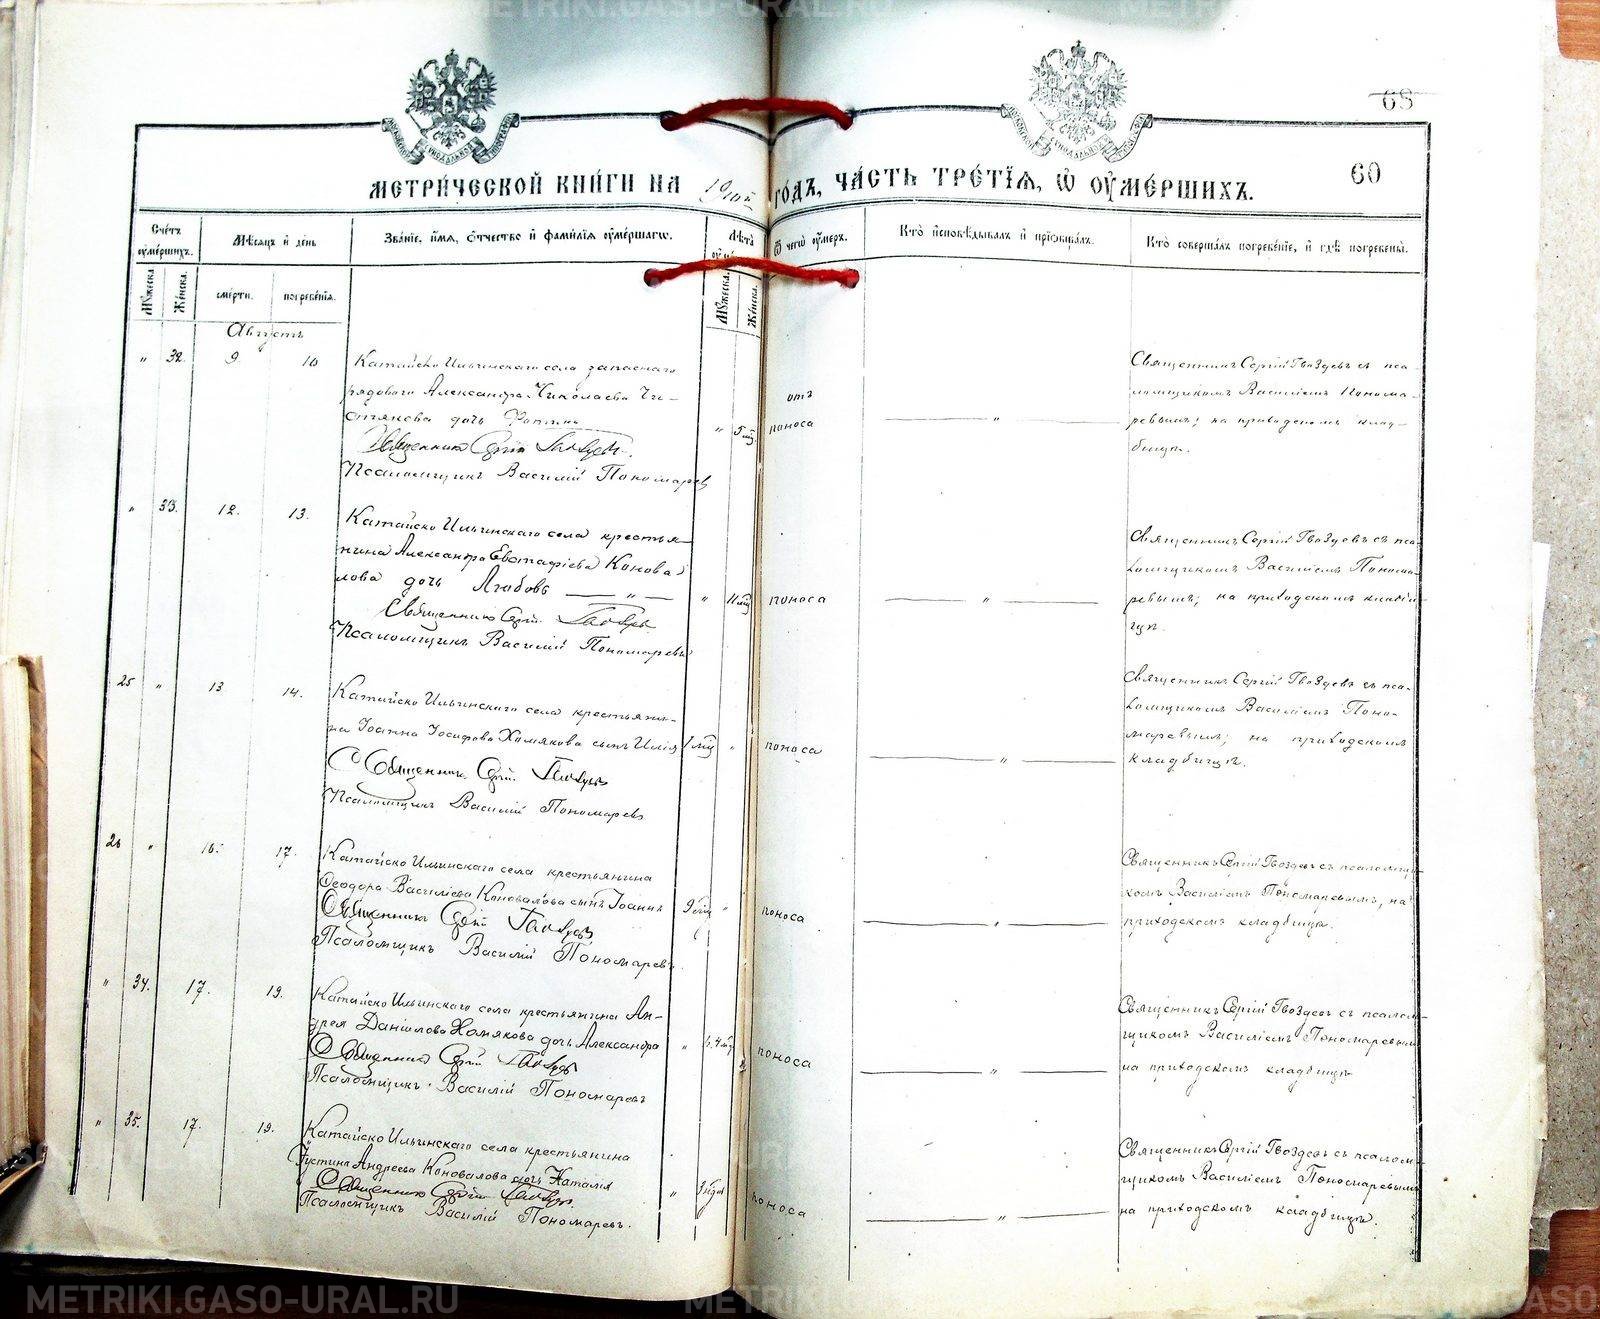 METRIKI.GASO-URAL.RU
68
60
МЕТРИ́ЧЕСКОЙ КНИ́ГИ НА 19 ГО́ДЪ, ЧА́СТЬ ТРЕ́ТЇѦ, Ѡ҆ ОУ҆МЕ́РШИХЪ.
Сче́тъ оу҆ме́ршихъ.
Мѣ́сѧцъ и҆ де́нь
Зва́нїе, и҆́мѧ, ѻ҆́тчество и҆ фами́лїѧ оу҆ме́ршагѡ.
Лѣ́та
Ѿ чегѡ̀ оу҆́меръ.
Кто̀ и҆сповѣ́дывалъ и҆ прїѡбща́лъ.
Кто̀ соверша́лъ погребе́нїе, и҆ гдѣ̀ погребены̀.
Мꙋ́жеска.
Же́нска.
сме́рти.
погребе́нїѧ.
Мꙋ́жеска.
Же́нска.
Августъ
" 32. 9. 10
Катайско Ильинскаго села запаснаго
рядового Александра Николаева Чи-
стякова дочь
Священникъ Сергій Гвоздевъ.
Псаломщикъ Василій Пономаревъ
" 5 мц
отъ
поноса
"
Священникъ Сергій Гвоздевъ съ пса-
ломщикомъ Василіемъ Понома-
ревымъ; на приходскомъ клад-
бищѣ.
" 33. 12. 13.
Катайско Ильинскаго села крестья-
нина Александра Евстафіева Конова-
лова дочь Любовь "
Священникъ Сергій Гвоздевъ.
Псаломщикъ Василій Пономаревъ
" 11 мц
поноса
"
Священникъ Сергій Гвоздевъ съ пса-
ломщикомъ Василіемъ Понома-
ревымъ; на приходскомъ кладби-
щѣ.
25 " 13 14.
Катайско Ильинскаго села крестьяни-
на Іоанна Іосифова Хомякова сынъ Илія
Священникъ Сергій Гвоздевъ
Псаломщикъ Василій Пономаревъ
1 мц "
поноса
"
Священникъ Сергій Гвоздевъ съ пса-
ломщикомъ Василіемъ Поно-
маревымъ; на приходскомъ
кладбищѣ.
26 " 16. 17.
Катайско Ильинскаго села крестьянина
Ѳеодора Василіева Коновалова сынъ Іоаннъ
Священникъ Сергій Гвоздевъ
Псаломщикъ Василій Пономаревъ.
9 "
поноса
"
Священникъ Сергій Гвоздевъ съ псаломщи-
комъ Василіемъ Пономаревымъ, на
приходскомъ кладбищѣ.
" 34. 17. 19.
Катайско Ильинскаго села крестьянина Ан-
дрея Даніилова Хомякова дочь Александра
Священникъ Сергій Гвоздевъ
Псаломщикъ Василій Пономаревъ
"
поноса
"
Священникъ Сергій Гвоздевъ съ псалом-
щикомъ Василіемъ Пономаревымъ
на приходскомъ кладбищѣ
" 35. 17. 19.
Катайско Ильинскаго села крестьянина
Іустина Андреева Коновалова дочь Наталія
Священникъ Сергій Гвоздевъ.
Псаломщикъ Василій Пономаревъ.
" 3
поноса
"
Священникъ Сергій Гвоздевъ съ псалом-
щикомъ Василіемъ Пономаревымъ
на приходскомъ кладбищѣ.
METRIKI.GASO-URAL.RU